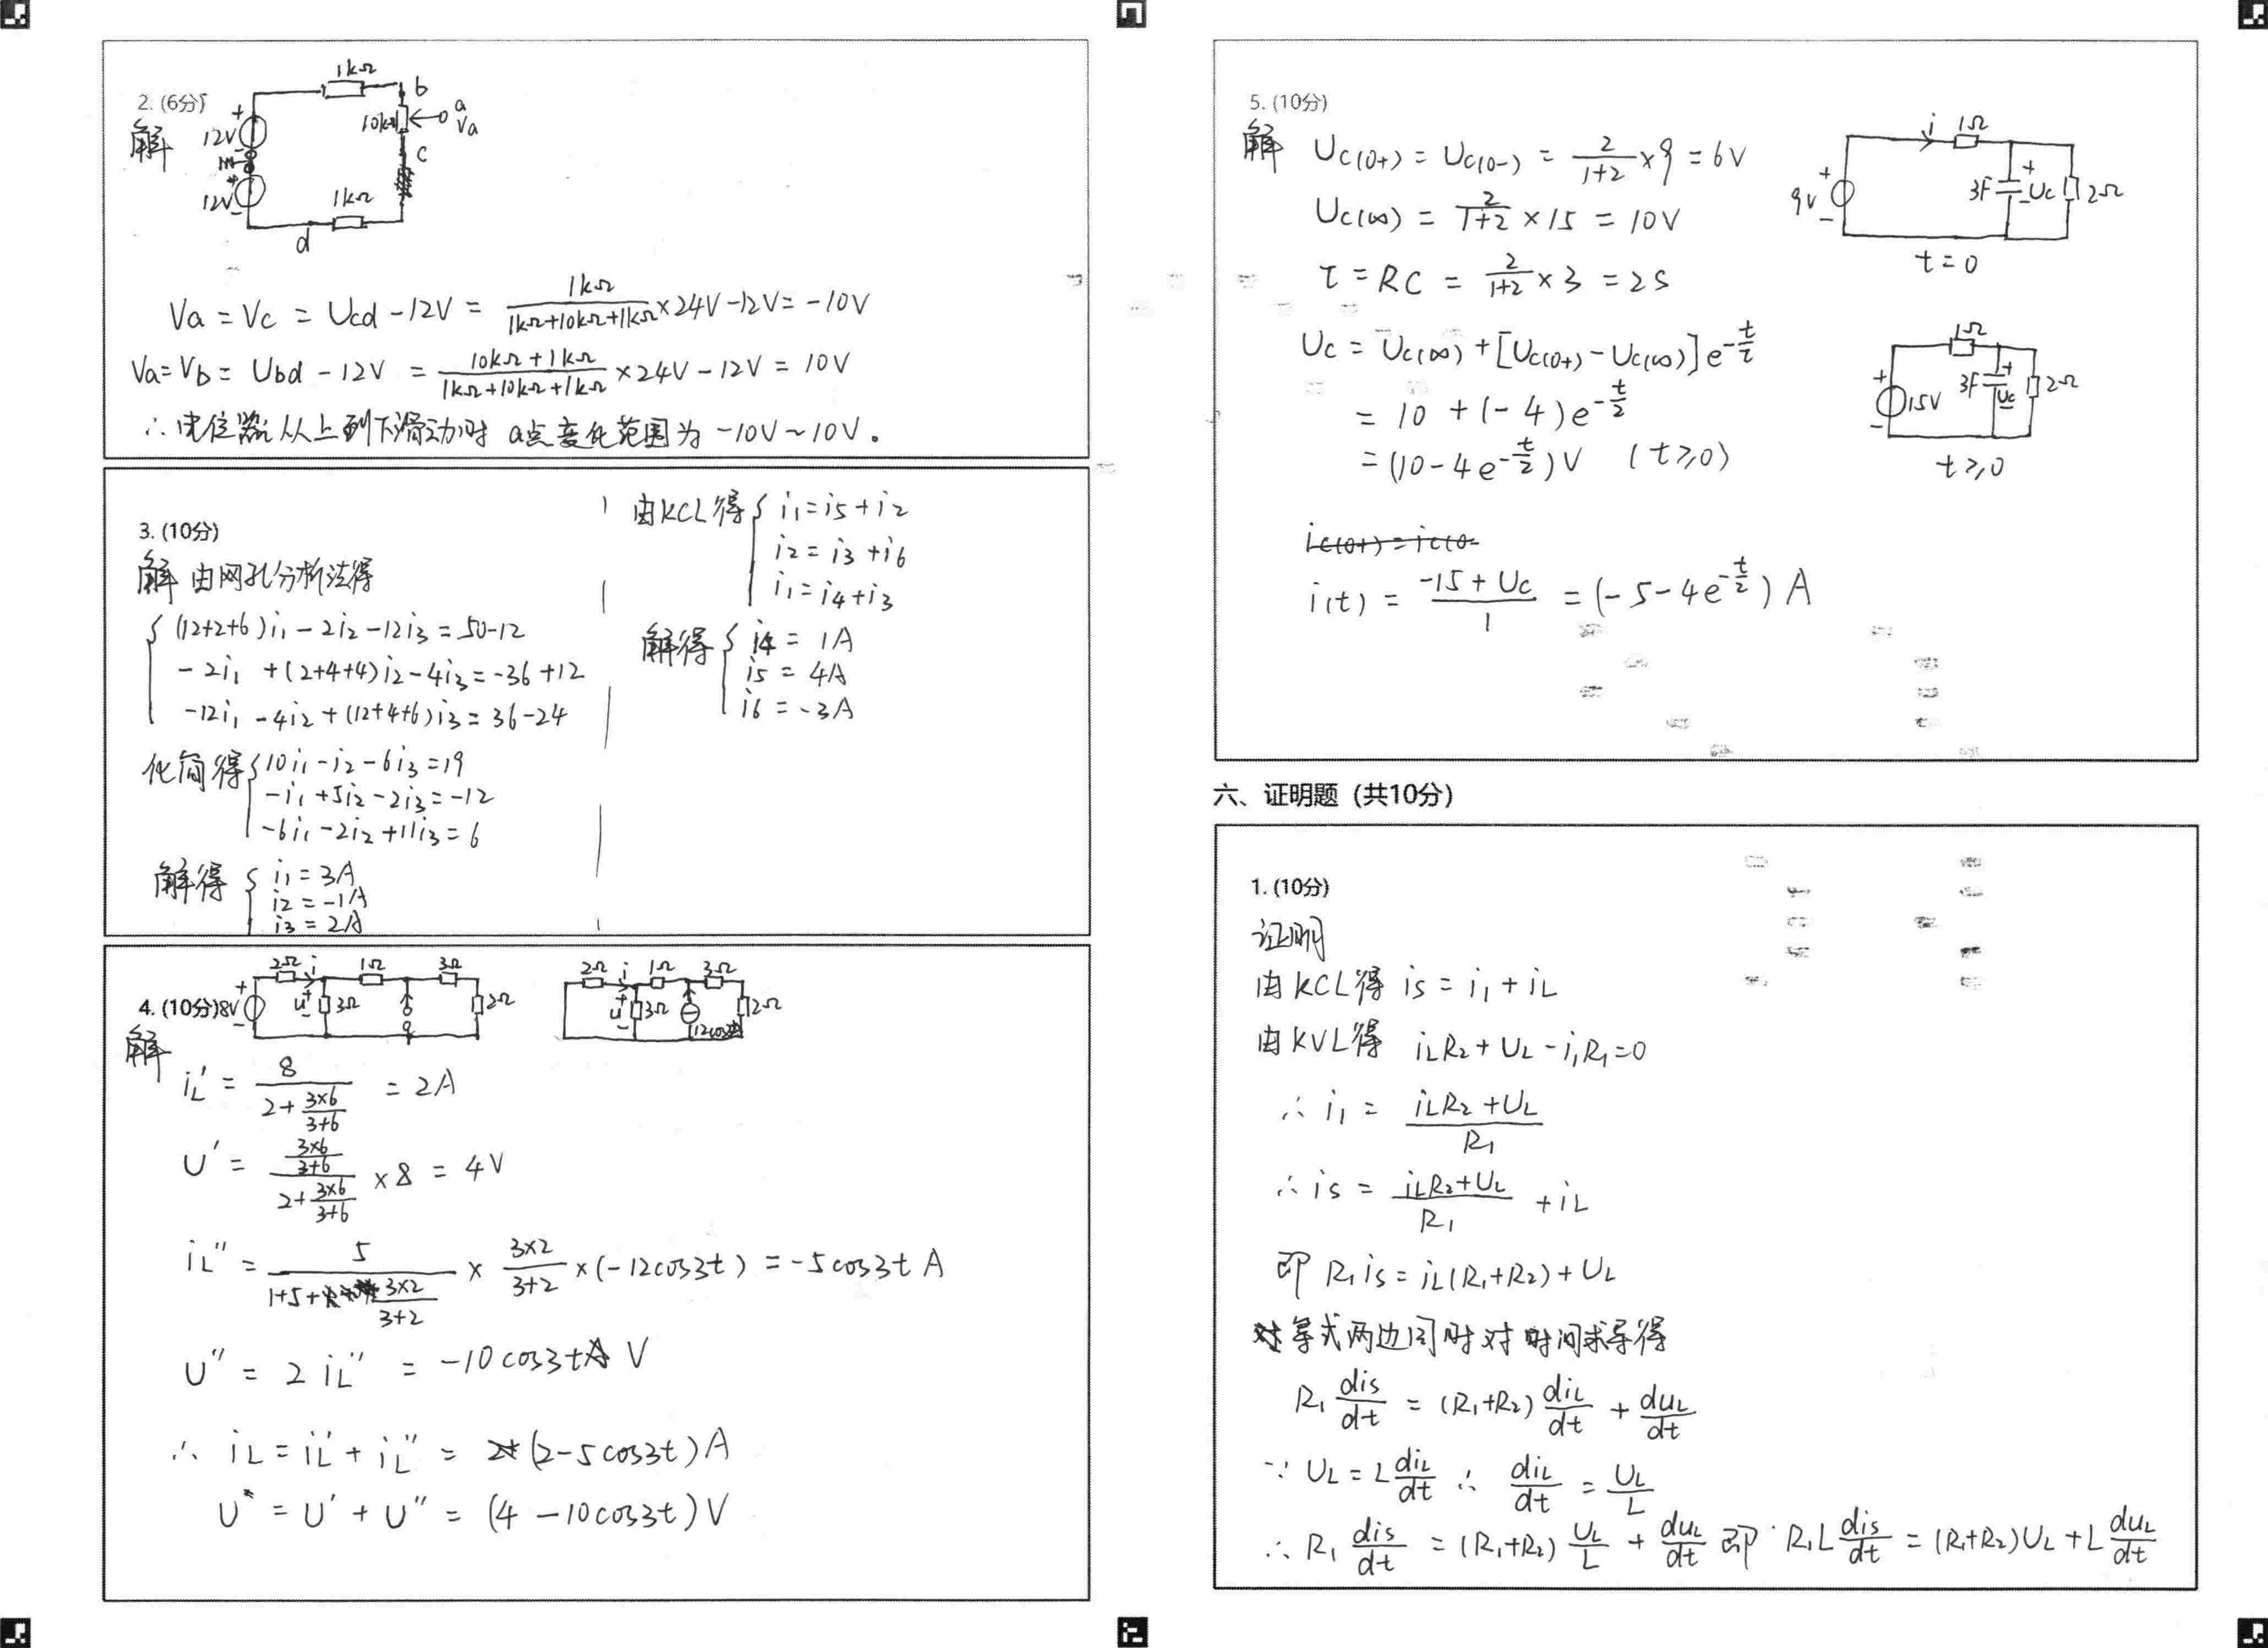 2. (6分)
解
1kΩ
b
12V
10kΩ
a
Va
c
12V
1kΩ
d
Va = Vc = Ucd - 12V = 1kΩ/(1kΩ+10kΩ+1kΩ) × 24V - 12V = -10V
Va = Vb = Ubd - 12V = (10kΩ+1kΩ)/(1kΩ+10kΩ+1kΩ) × 24V - 12V = 10V
∴ 电位器从上到下滑动时 a点变化范围为 -10V ~ 10V。
3. (10分)
解 由网孔分析法得
(12+2+6)i1 - 2i2 - 12i3 = 50-12
-2i1 + (2+4+4)i2 - 4i3 = -36+12
-12i1 - 4i2 + (12+4+6)i3 = 36-24
化简得 10i1 - i2 - 6i3 = 19
-i1 + 5i2 - 2i3 = -12
-6i1 - 2i2 + 11i3 = 6
解得 i1 = 3A
i2 = -1A
i3 = 2A
由KCL得 i1 = i5 + i2
i2 = i3 + i6
i1 = i4 + i3
解得 i4 = 1A
i5 = 4A
i6 = -3A
4. (10分)
8V 2Ω i 1Ω 3Ω
u 3Ω 2Ω
2Ω i 1Ω 3Ω
u 3Ω 12cos3t 2Ω
解
iL' = 8/(2+(3×6)/(3+6)) = 2A
U' = ((3×6)/(3+6))/(2+(3×6)/(3+6)) × 8 = 4V
iL'' = 5/(1+5+(3×2)/(3+2)) × (3×2)/(3+2) × (-12cos3t) = -5cos3t A
U'' = 2iL'' = -10cos3t V
∴ iL = iL' + iL'' = (2-5cos3t)A
U = U' + U'' = (4-10cos3t)V
5. (10分)
解 Uc(0+) = Uc(0-) = 2/(1+2) × 9 = 6V
Uc(∞) = 2/(1+2) × 15 = 10V
τ = RC = 2/(1+2) × 3 = 2s
Uc = Uc(∞) + [Uc(0+) - Uc(∞)]e^(-t/τ)
= 10 + (-4)e^(-t/2)
= (10-4e^(-t/2))V (t≥0)
ic(0+) = ic(0-
i(t) = (-15+Uc)/1 = (-5-4e^(-t/2))A
i 1Ω
9V 3F Uc 2Ω
t=0
1Ω
15V 3F Uc 2Ω
t≥0
六、证明题（共10分）
1. (10分)
证明
由KCL得 is = i1 + iL
由KVL得 iLR2 + UL - i1R1 = 0
∴ i1 = (iLR2+UL)/R1
∴ is = (iLR2+UL)/R1 + iL
即 R1is = iL(R1+R2) + UL
对等式两边同时对时间求导得
R1 dis/dt = (R1+R2) diL/dt + duL/dt
∵ UL = L diL/dt ∴ diL/dt = UL/L
∴ R1 dis/dt = (R1+R2) UL/L + duL/dt 即 R1L dis/dt = (R1+R2)UL + L duL/dt